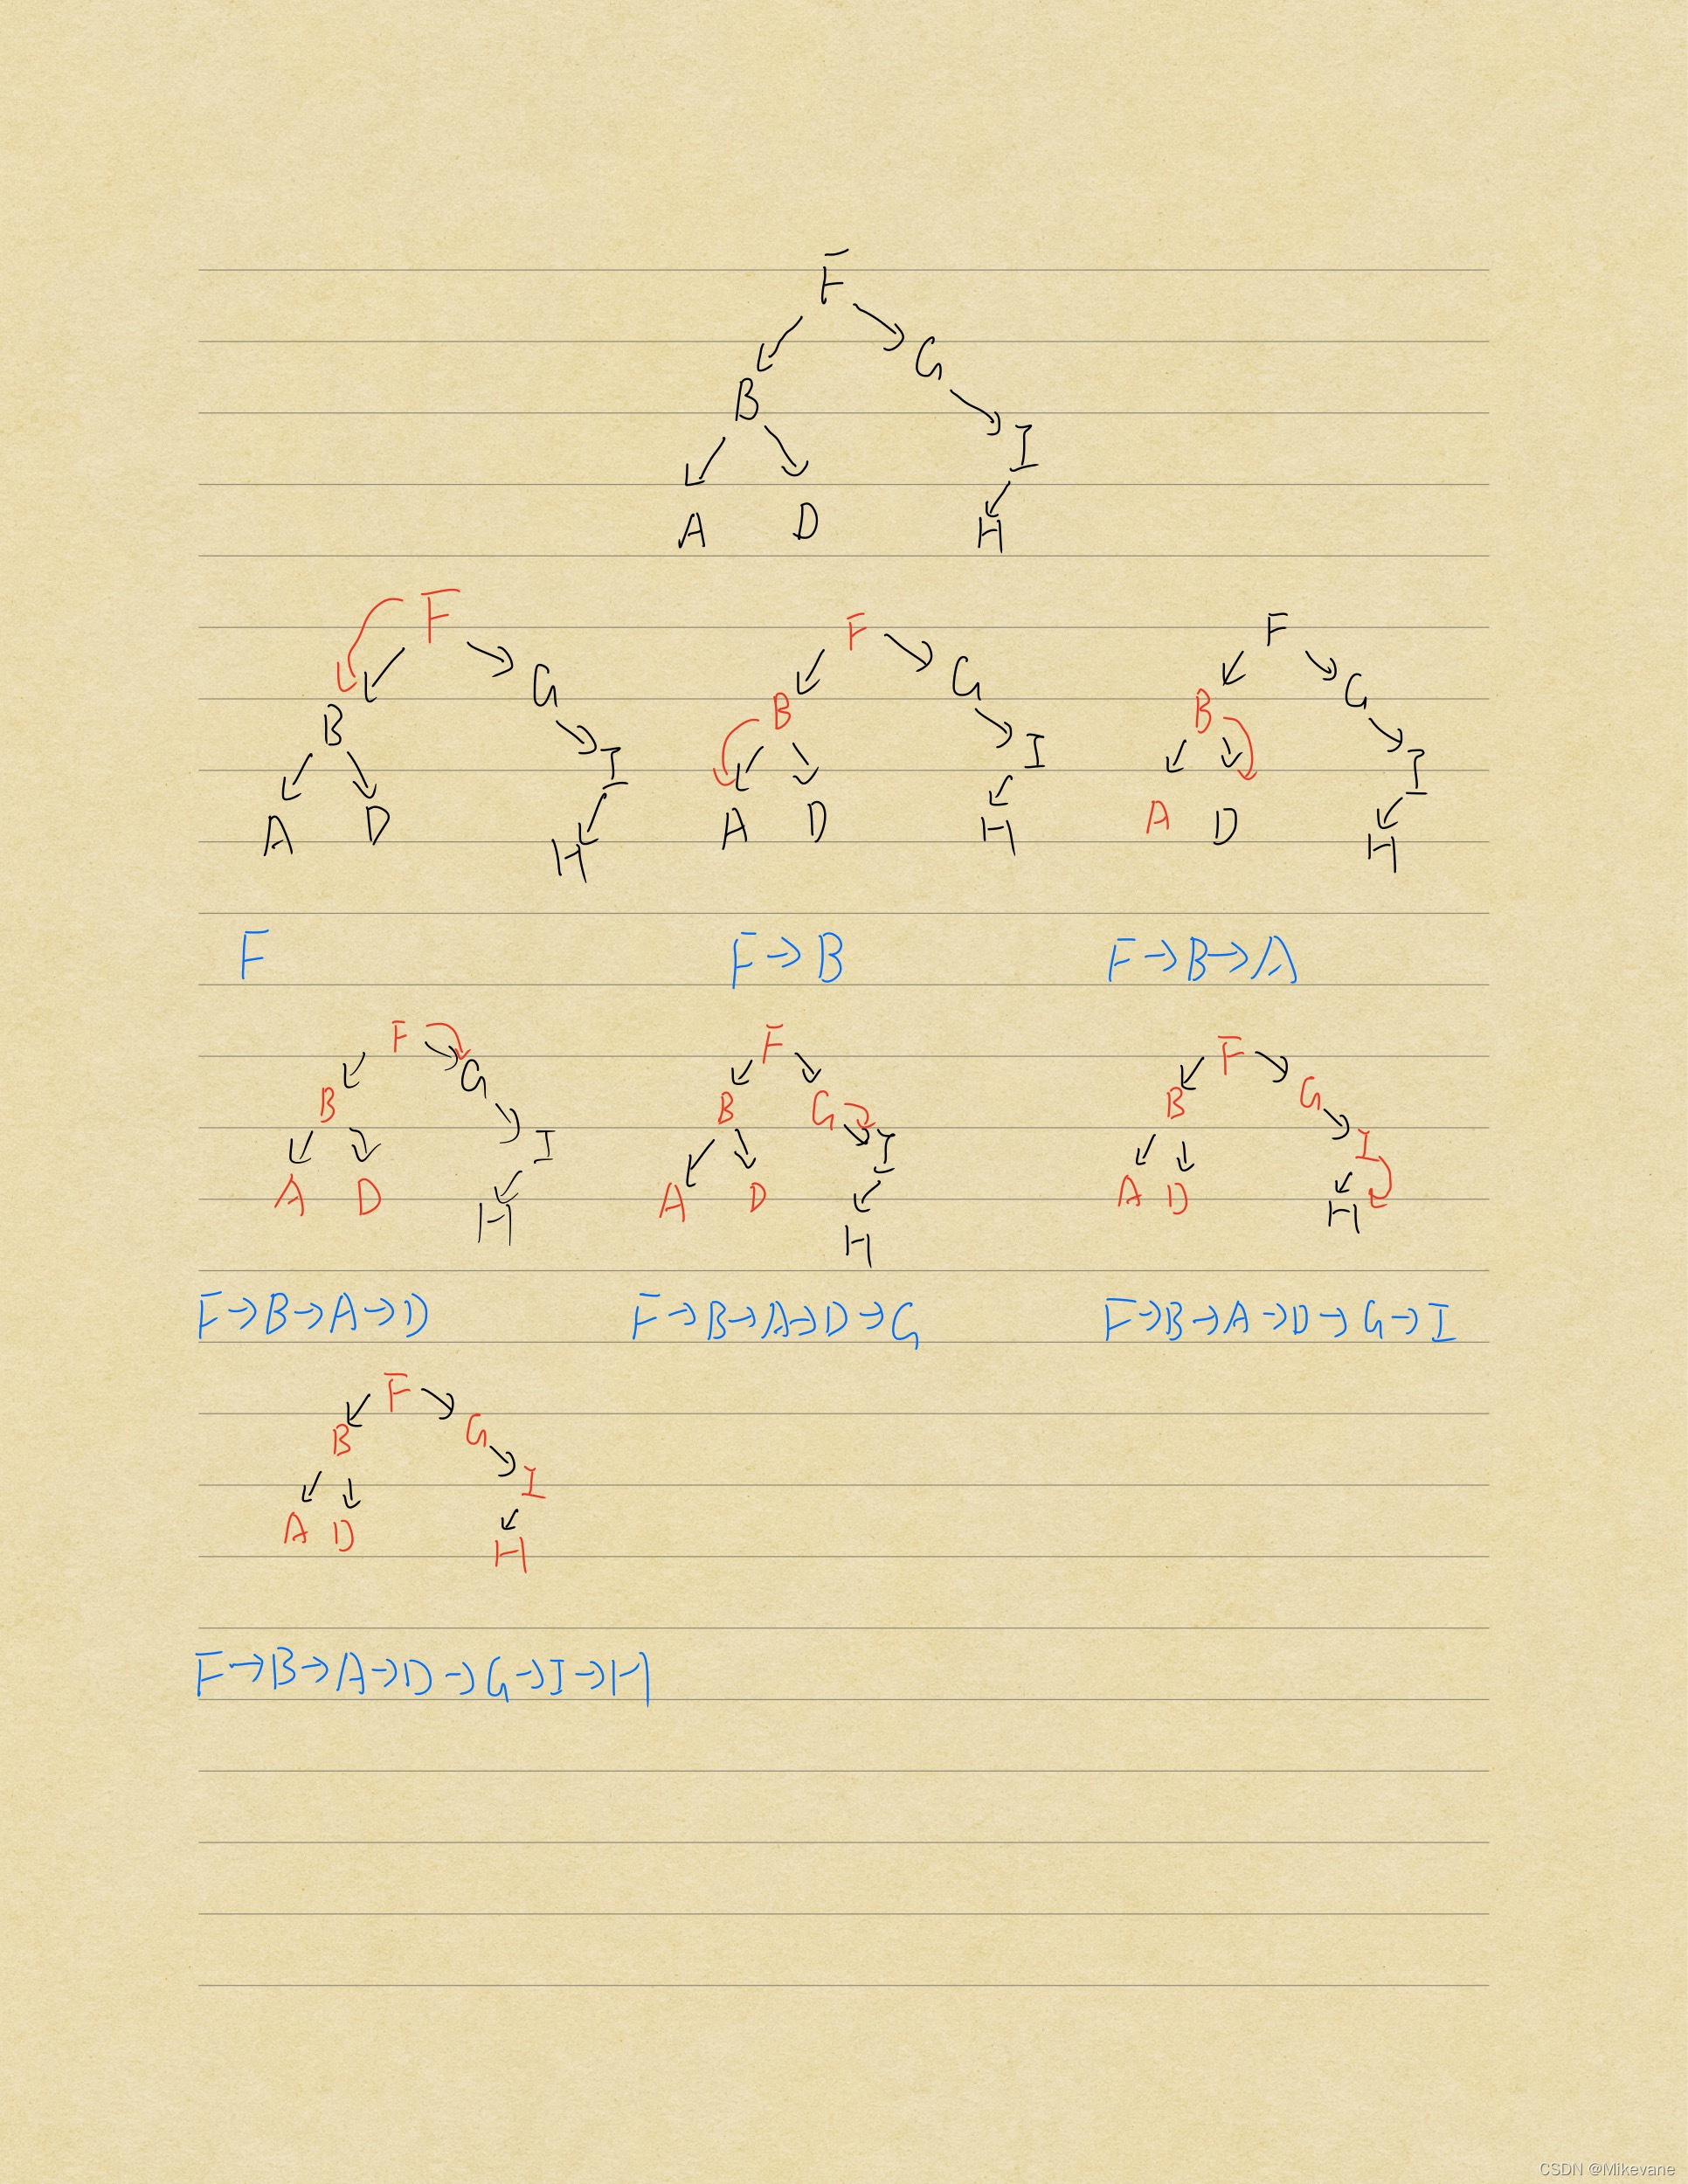 F
G
B
I
A D H
F F F
G G G
B B B
I I I
A D A D A D
H H H
F F→B F→B→A
F F F
G G G
B B B
I I I
A D A D A D
H H H
F→B→A→D F→B→A→D→G F→B→A→D→G→I
F
G
B
I
A D
H
F→B→A→D→G→I→H
CSDN @Mikevane